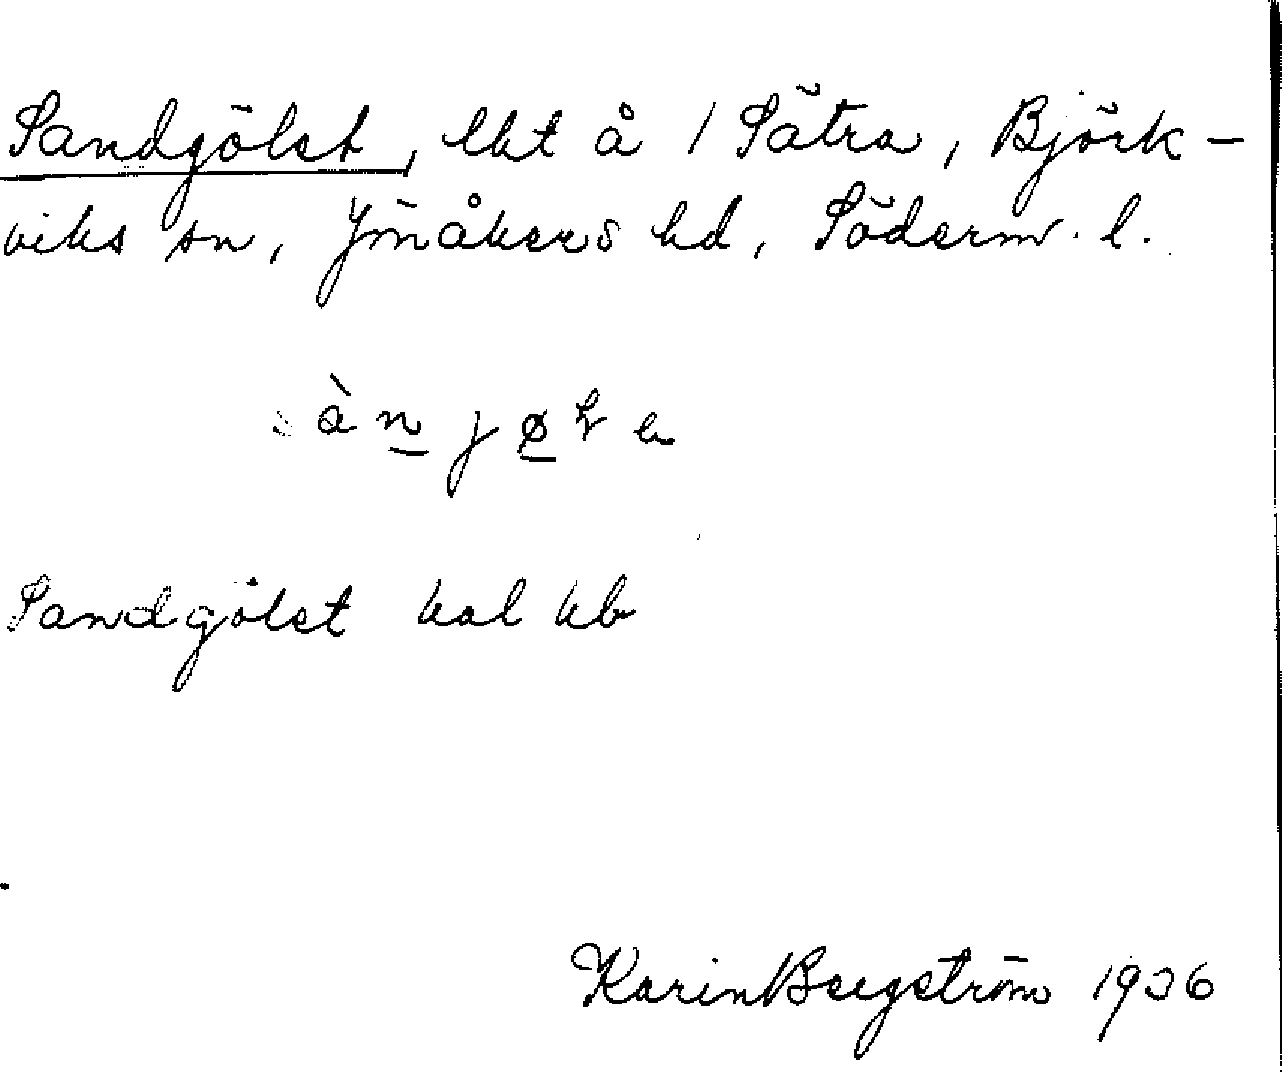 Sandgölet, lht å 1 Sätra, Björk-
viks sn, Jönåkers hd, Söderm. l.
Sandgölet hal kb
Karin Bergström 1936